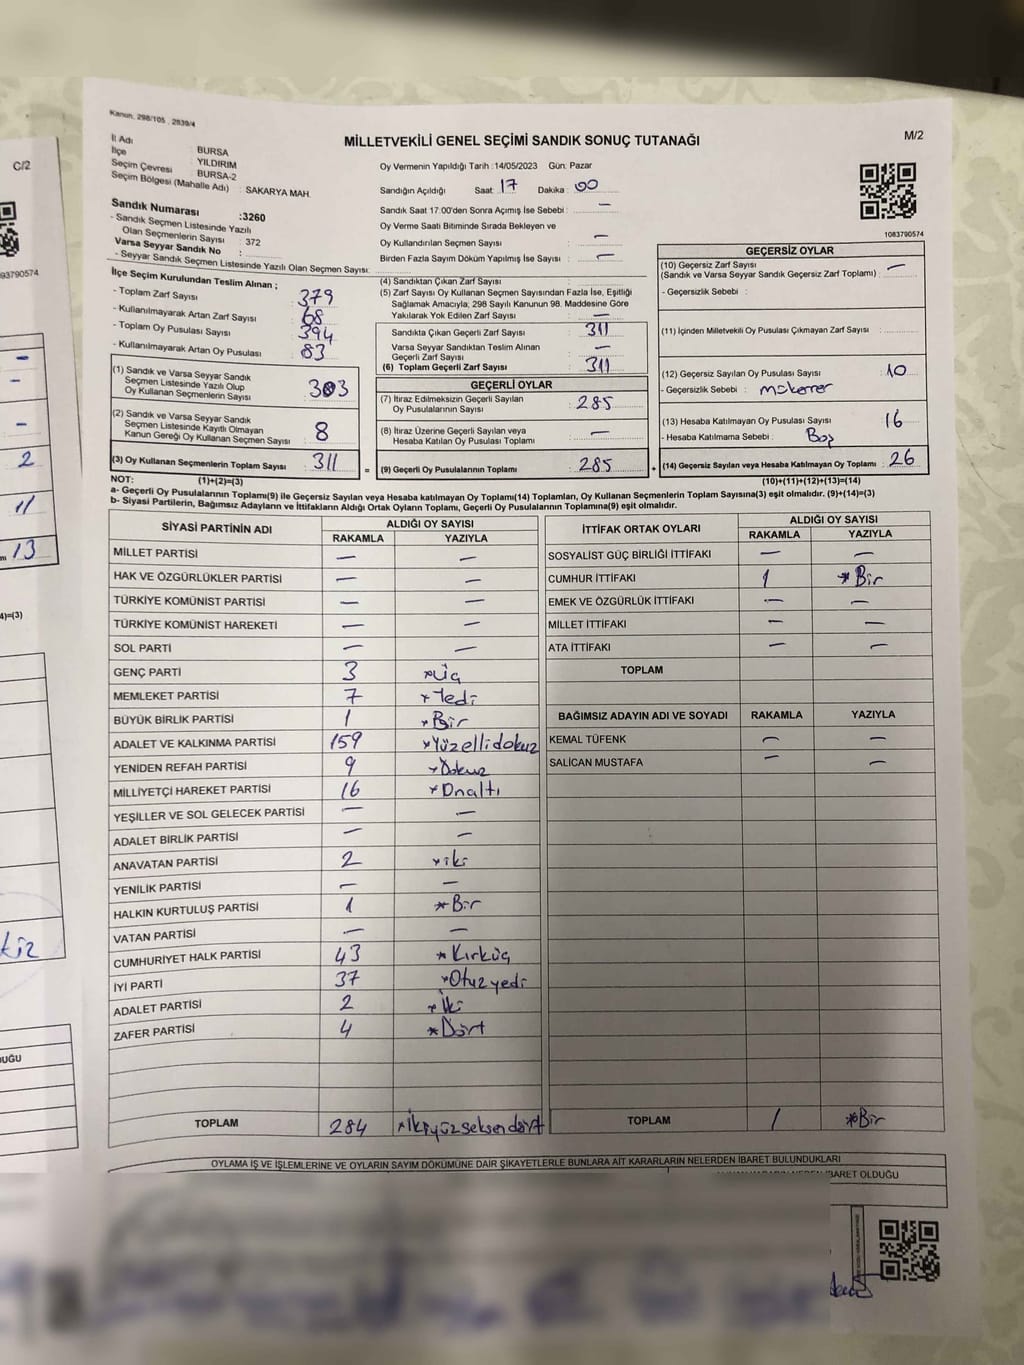 Kanun, 298/105 , 2839/4
MİLLETVEKİLİ GENEL SEÇİMİ SANDIK SONUÇ TUTANAĞI
M/2
C/2
İl Adı : BURSA
İlçe : YILDIRIM
Seçim Çevresi : BURSA-2
Seçim Bölgesi (Mahalle Adı) : SAKARYA MAH.
Oy Vermenin Yapıldığı Tarih :14/05/2023 Gün: Pazar
Sandığın Açıldığı Saat: 17 Dakika : 00
Sandık Saat 17.00'den Sonra Açımış İse Sebebi : —
Oy Verme Saati Bitiminde Sırada Bekleyen ve
Oy Kullandırılan Seçmen Sayısı : —
Birden Fazla Sayım Döküm Yapılmış İse Sayısı : —
1083790574
93790574
Sandık Numarası :3260
- Sandık Seçmen Listesinde Yazılı
Olan Seçmenlerin Sayısı : 372
Varsa Seyyar Sandık No :
- Seyyar Sandık Seçmen Listesinde Yazılı Olan Seçmen Sayısı:
İlçe Seçim Kurulundan Teslim Alınan ;
- Toplam Zarf Sayısı : 379
- Kullanılmayarak Artan Zarf Sayısı : 68
- Toplam Oy Pusulası Sayısı : 394
- Kullanılmayarak Artan Oy Pusulası : 83
(1) Sandık ve Varsa Seyyar Sandık
Seçmen Listesinde Yazılı Olup
Oy Kullanan Seçmenlerin Sayısı : 303
(2) Sandık ve Varsa Seyyar Sandık
Seçmen Listesinde Kayıtlı Olmayan
Kanun Gereği Oy Kullanan Seçmen Sayısı : 8
(3) Oy Kullanan Seçmenlerin Toplam Sayısı : 311
(4) Sandıktan Çıkan Zarf Sayısı :
(5) Zarf Sayısı Oy Kullanan Seçmen Sayısından Fazla İse, Eşitliği
Sağlamak Amacıyla; 298 Sayılı Kanunun 98. Maddesine Göre
Yakılarak Yok Edilen Zarf Sayısı : —
Sandıkta Çıkan Geçerli Zarf Sayısı : 311
Varsa Seyyar Sandıktan Teslim Alınan
Geçerli Zarf Sayısı : —
(6) Toplam Geçerli Zarf Sayısı : 311
GEÇERLİ OYLAR
(7) İtiraz Edilmeksizin Geçerli Sayılan
Oy Pusulalarının Sayısı : 285
(8) İtiraz Üzerine Geçerli Sayılan veya
Hesaba Katılan Oy Pusulası Toplamı : —
= (9) Geçerli Oy Pusulalarının Toplamı : 285
GEÇERSİZ OYLAR
(10) Geçersiz Zarf Sayısı
(Sandık ve Varsa Seyyar Sandık Geçersiz Zarf Toplamı) : —
- Geçersizlik Sebebi :
(11) İçinden Milletvekili Oy Pusulası Çıkmayan Zarf Sayısı :
(12) Geçersiz Sayılan Oy Pusulası Sayısı : 10
- Geçersizlik Sebebi : mükerrer
(13) Hesaba Katılmayan Oy Pusulası Sayısı : 16
- Hesaba Katılmama Sebebi : Boş
+ (14) Geçersiz Sayılan veya Hesaba Katılmayan Oy Toplamı : 26
NOT: (1)+(2)=(3)
(10)+(11)+(12)+(13)=(14)
a- Geçerli Oy Pusulalarının Toplamı(9) ile Geçersiz Sayılan veya Hesaba katılmayan Oy Toplamı(14) Toplamları, Oy Kullanan Seçmenlerin Toplam Sayısına(3) eşit olmalıdır. (9)+(14)=(3)
b- Siyasi Partilerin, Bağımsız Adayların ve İttifakların Aldığı Ortak Oyların Toplamı, Geçerli Oy Pusulalarının Toplamına(9) eşit olmalıdır.
SİYASİ PARTİNİN ADI ALDIĞI OY SAYISI
RAKAMLA YAZIYLA
MİLLET PARTİSİ — —
HAK VE ÖZGÜRLÜKLER PARTİSİ — —
TÜRKİYE KOMÜNİST PARTİSİ — —
TÜRKİYE KOMÜNİST HAREKETİ — —
SOL PARTİ — —
GENÇ PARTİ 3 *Üç
MEMLEKET PARTİSİ 7 *Yedi
BÜYÜK BİRLİK PARTİSİ 1 *Bir
ADALET VE KALKINMA PARTİSİ 159 *Yüzellidokuz
YENİDEN REFAH PARTİSİ 9 *Dokuz
MİLLİYETÇİ HAREKET PARTİSİ 16 *Onaltı
YEŞİLLER VE SOL GELECEK PARTİSİ — —
ADALET BİRLİK PARTİSİ — —
ANAVATAN PARTİSİ 2 *iki
YENİLİK PARTİSİ — —
HALKIN KURTULUŞ PARTİSİ 1 *Bir
VATAN PARTİSİ — —
CUMHURİYET HALK PARTİSİ 43 *Kırküç
İYİ PARTİ 37 *Otuzyedi
ADALET PARTİSİ 2 *İki
ZAFER PARTİSİ 4 *Dört
TOPLAM 284 *İkiyüzseksendört
İTTİFAK ORTAK OYLARI ALDIĞI OY SAYISI
RAKAMLA YAZIYLA
SOSYALİST GÜÇ BİRLİĞİ İTTİFAKI — —
CUMHUR İTTİFAKI 1 *Bir
EMEK VE ÖZGÜRLÜK İTTİFAKI — —
MİLLET İTTİFAKI — —
ATA İTTİFAKI — —
TOPLAM
BAĞIMSIZ ADAYIN ADI VE SOYADI RAKAMLA YAZIYLA
KEMAL TÜFENK — —
SALİCAN MUSTAFA — —
TOPLAM 1 *Bir
OYLAMA İŞ VE İŞLEMLERİNE VE OYLARIN SAYIM DÖKÜMÜNE DAİR ŞİKAYETLERLE BUNLARA AİT KARARLARIN NELERDEN İBARET BULUNDUKLARI
İBARET OLDUĞU
2
11
13
4)=(3)